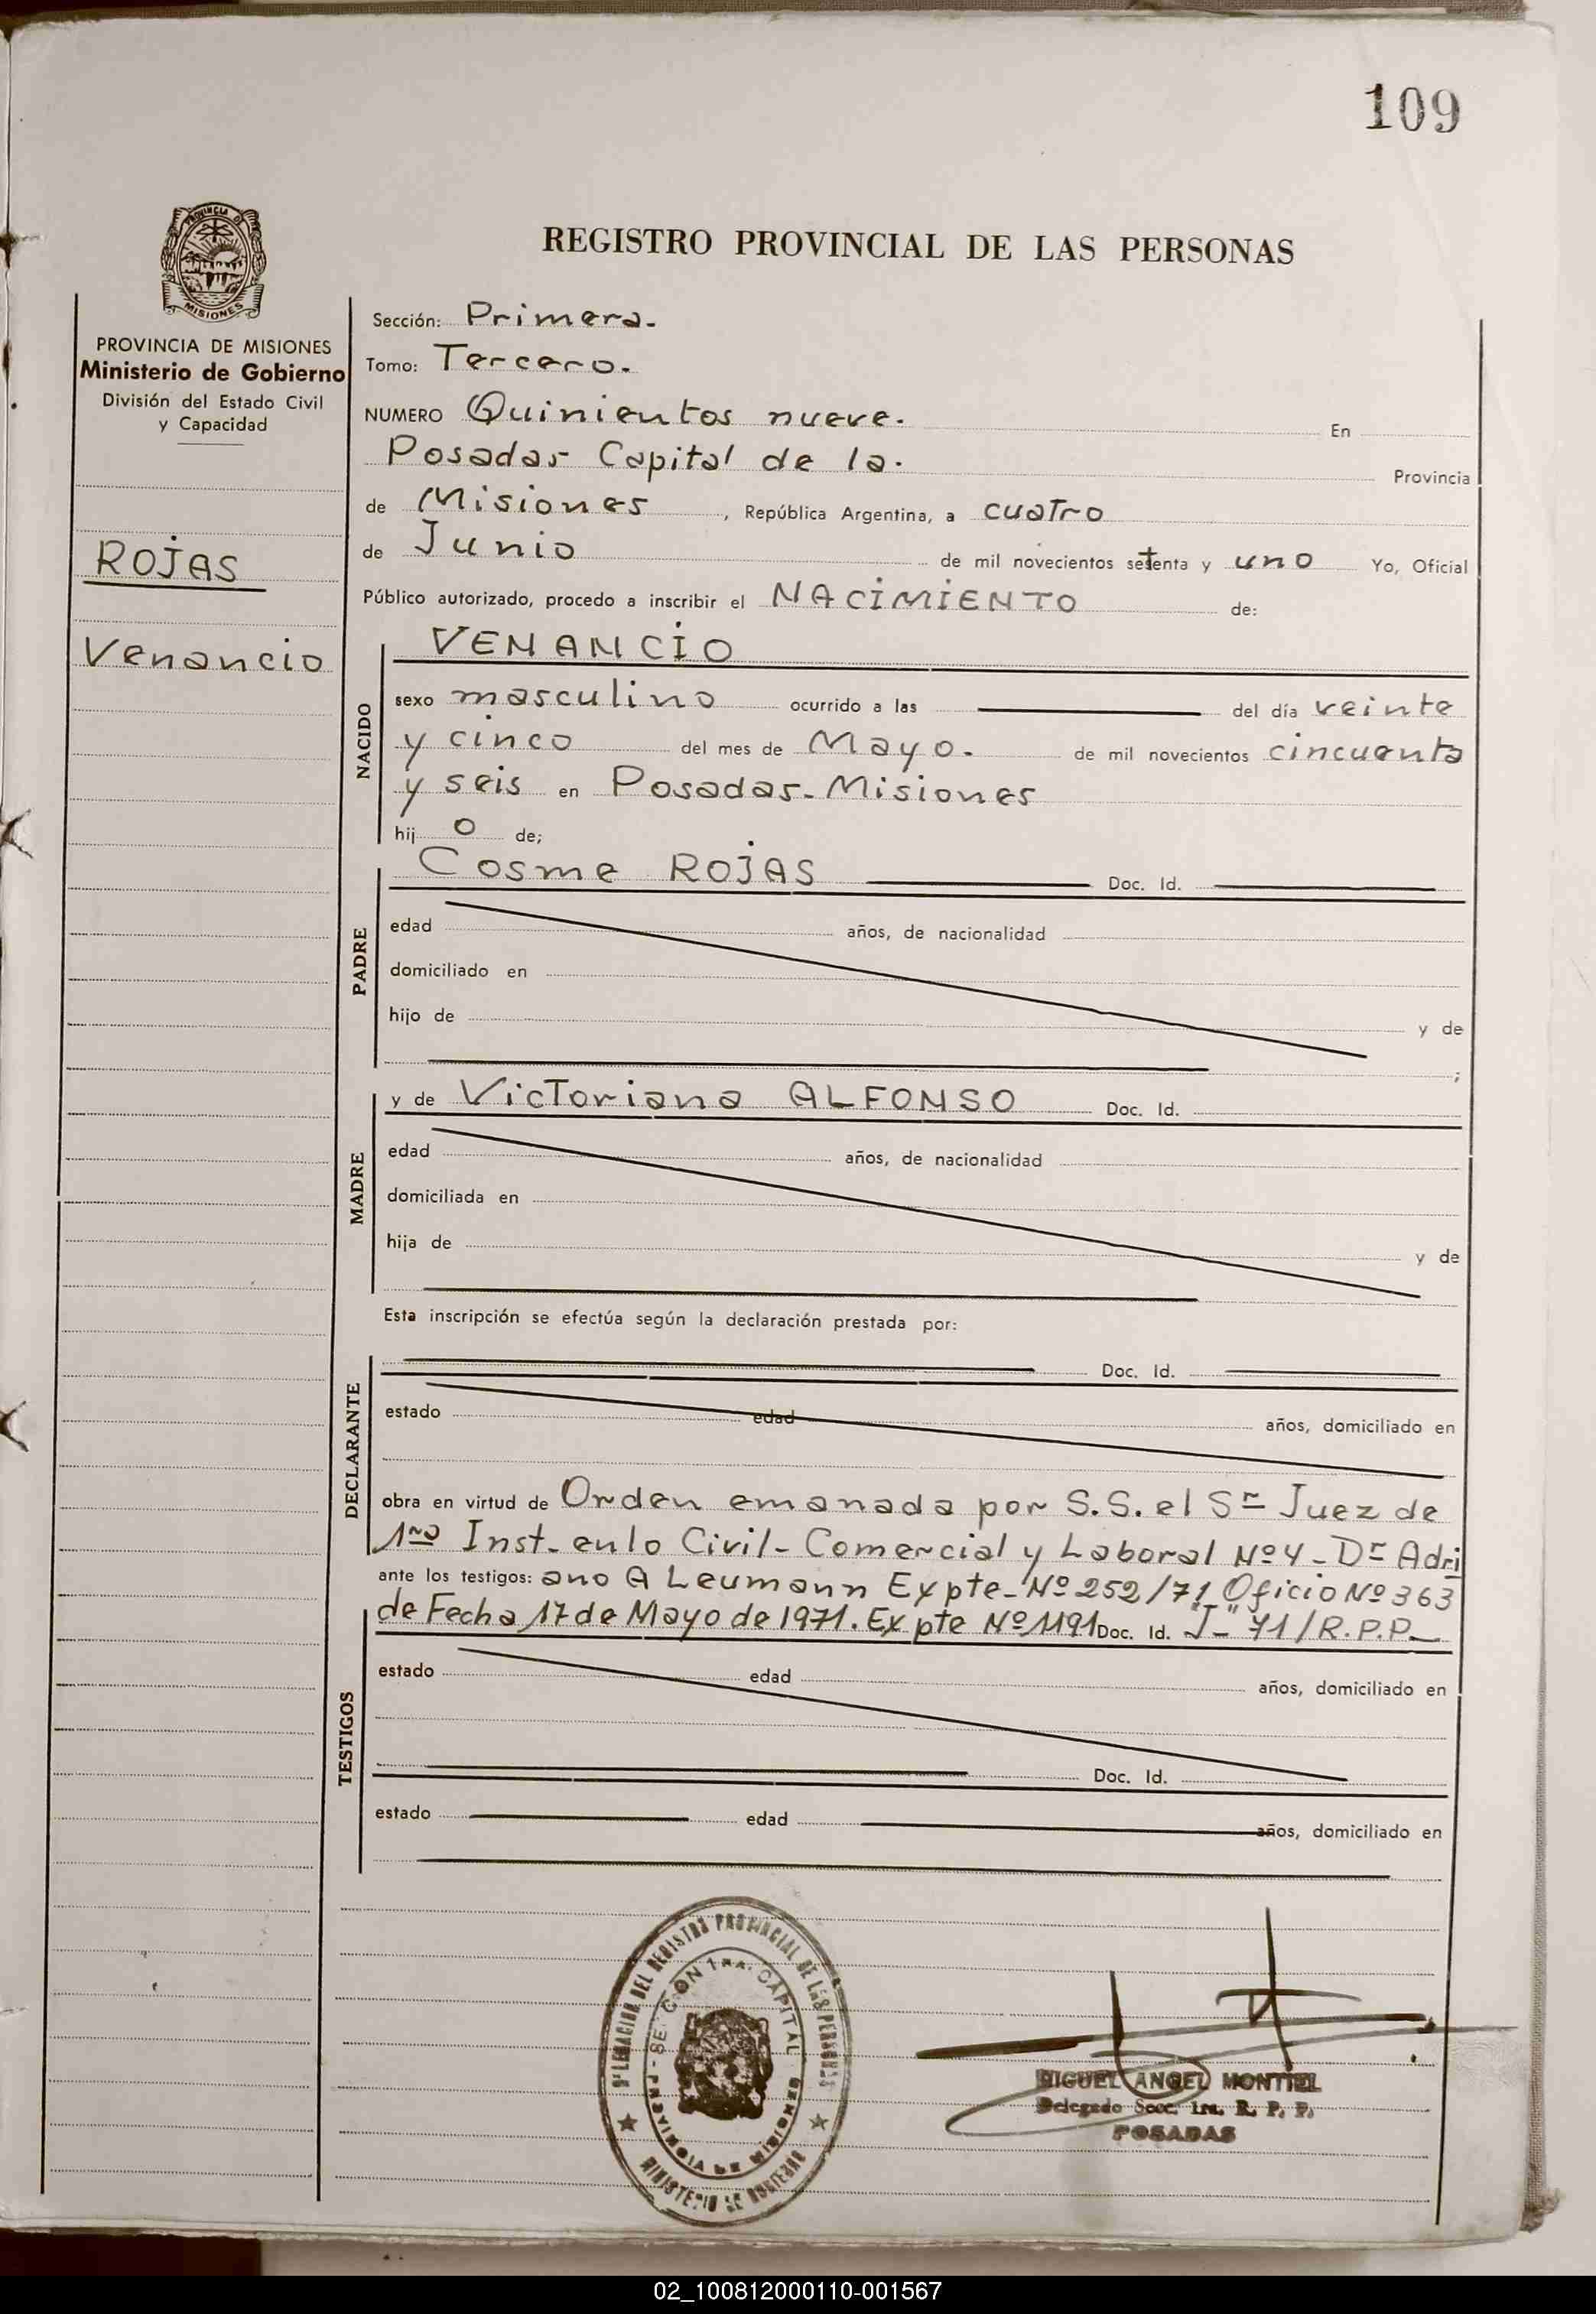 109
PROVINCIA DE
MISIONES
REGISTRO PROVINCIAL DE LAS PERSONAS
PROVINCIA DE MISIONES
Ministerio de Gobierno
División del Estado Civil
y Capacidad
ROJAS
Venancio
Sección: Primera.
Tomo: Tercero.
NUMERO Quinientos nueve. En
Posadas Capital de la. Provincia
de Misiones, República Argentina, a cuatro
de Junio de mil novecientos setenta y uno Yo, Oficial
Público autorizado, procedo a inscribir el NACIMIENTO de:
NACIDO
VENANCIO
sexo masculino ocurrido a las del día veinte
y cinco del mes de Mayo. de mil novecientos cincuenta
y seis en Posadas-Misiones
hij o de;
PADRE
Cosme ROJAS Doc. Id.
edad años, de nacionalidad
domiciliado en
hijo de y de
;
MADRE
y de Victoriana ALFONSO Doc. Id.
edad años, de nacionalidad
domiciliada en
hija de y de
Esta inscripción se efectúa según la declaración prestada por:
DECLARANTE
Doc. Id.
estado edad años, domiciliado en
obra en virtud de Orden emanada por S.S. el Sr Juez de
1ra Inst- en lo Civil- Comercial y Laboral Nº4- Dr Adri
ante los testigos: ano A Leumann Expte-Nº252/71 Oficio Nº363
de Fecha 17 de Mayo de 1971. Expte Nº1191 Doc. Id. "J"- 71/R.P.P-
TESTIGOS
estado edad años, domiciliado en
Doc. Id.
estado edad años, domiciliado en
DELEGACION DEL REGISTRO PROVINCIAL DE LAS PERSONAS
SECCION 1RA. CAPITAL
PROVINCIA DE MISIONES
MINISTERIO DE GOBIERNO
MIGUEL ANGEL MONTIEL
Delegado Secc. 1ra. R. P. P.
POSADAS
02_100812000110-001567